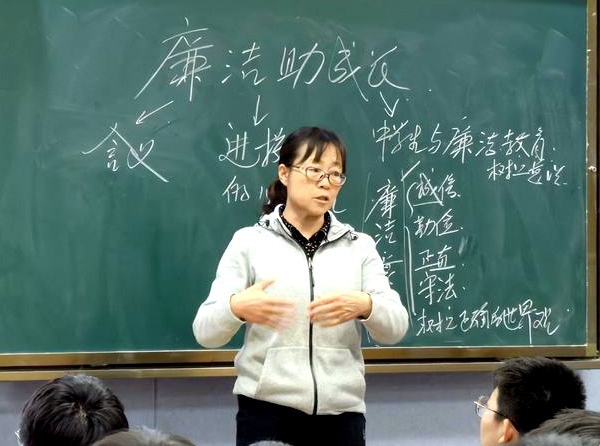 廉洁助成长
含义
进校
中学生与廉洁教育
树立意识
廉洁
诚信
勤俭
正直
守法
树立正确的世界观